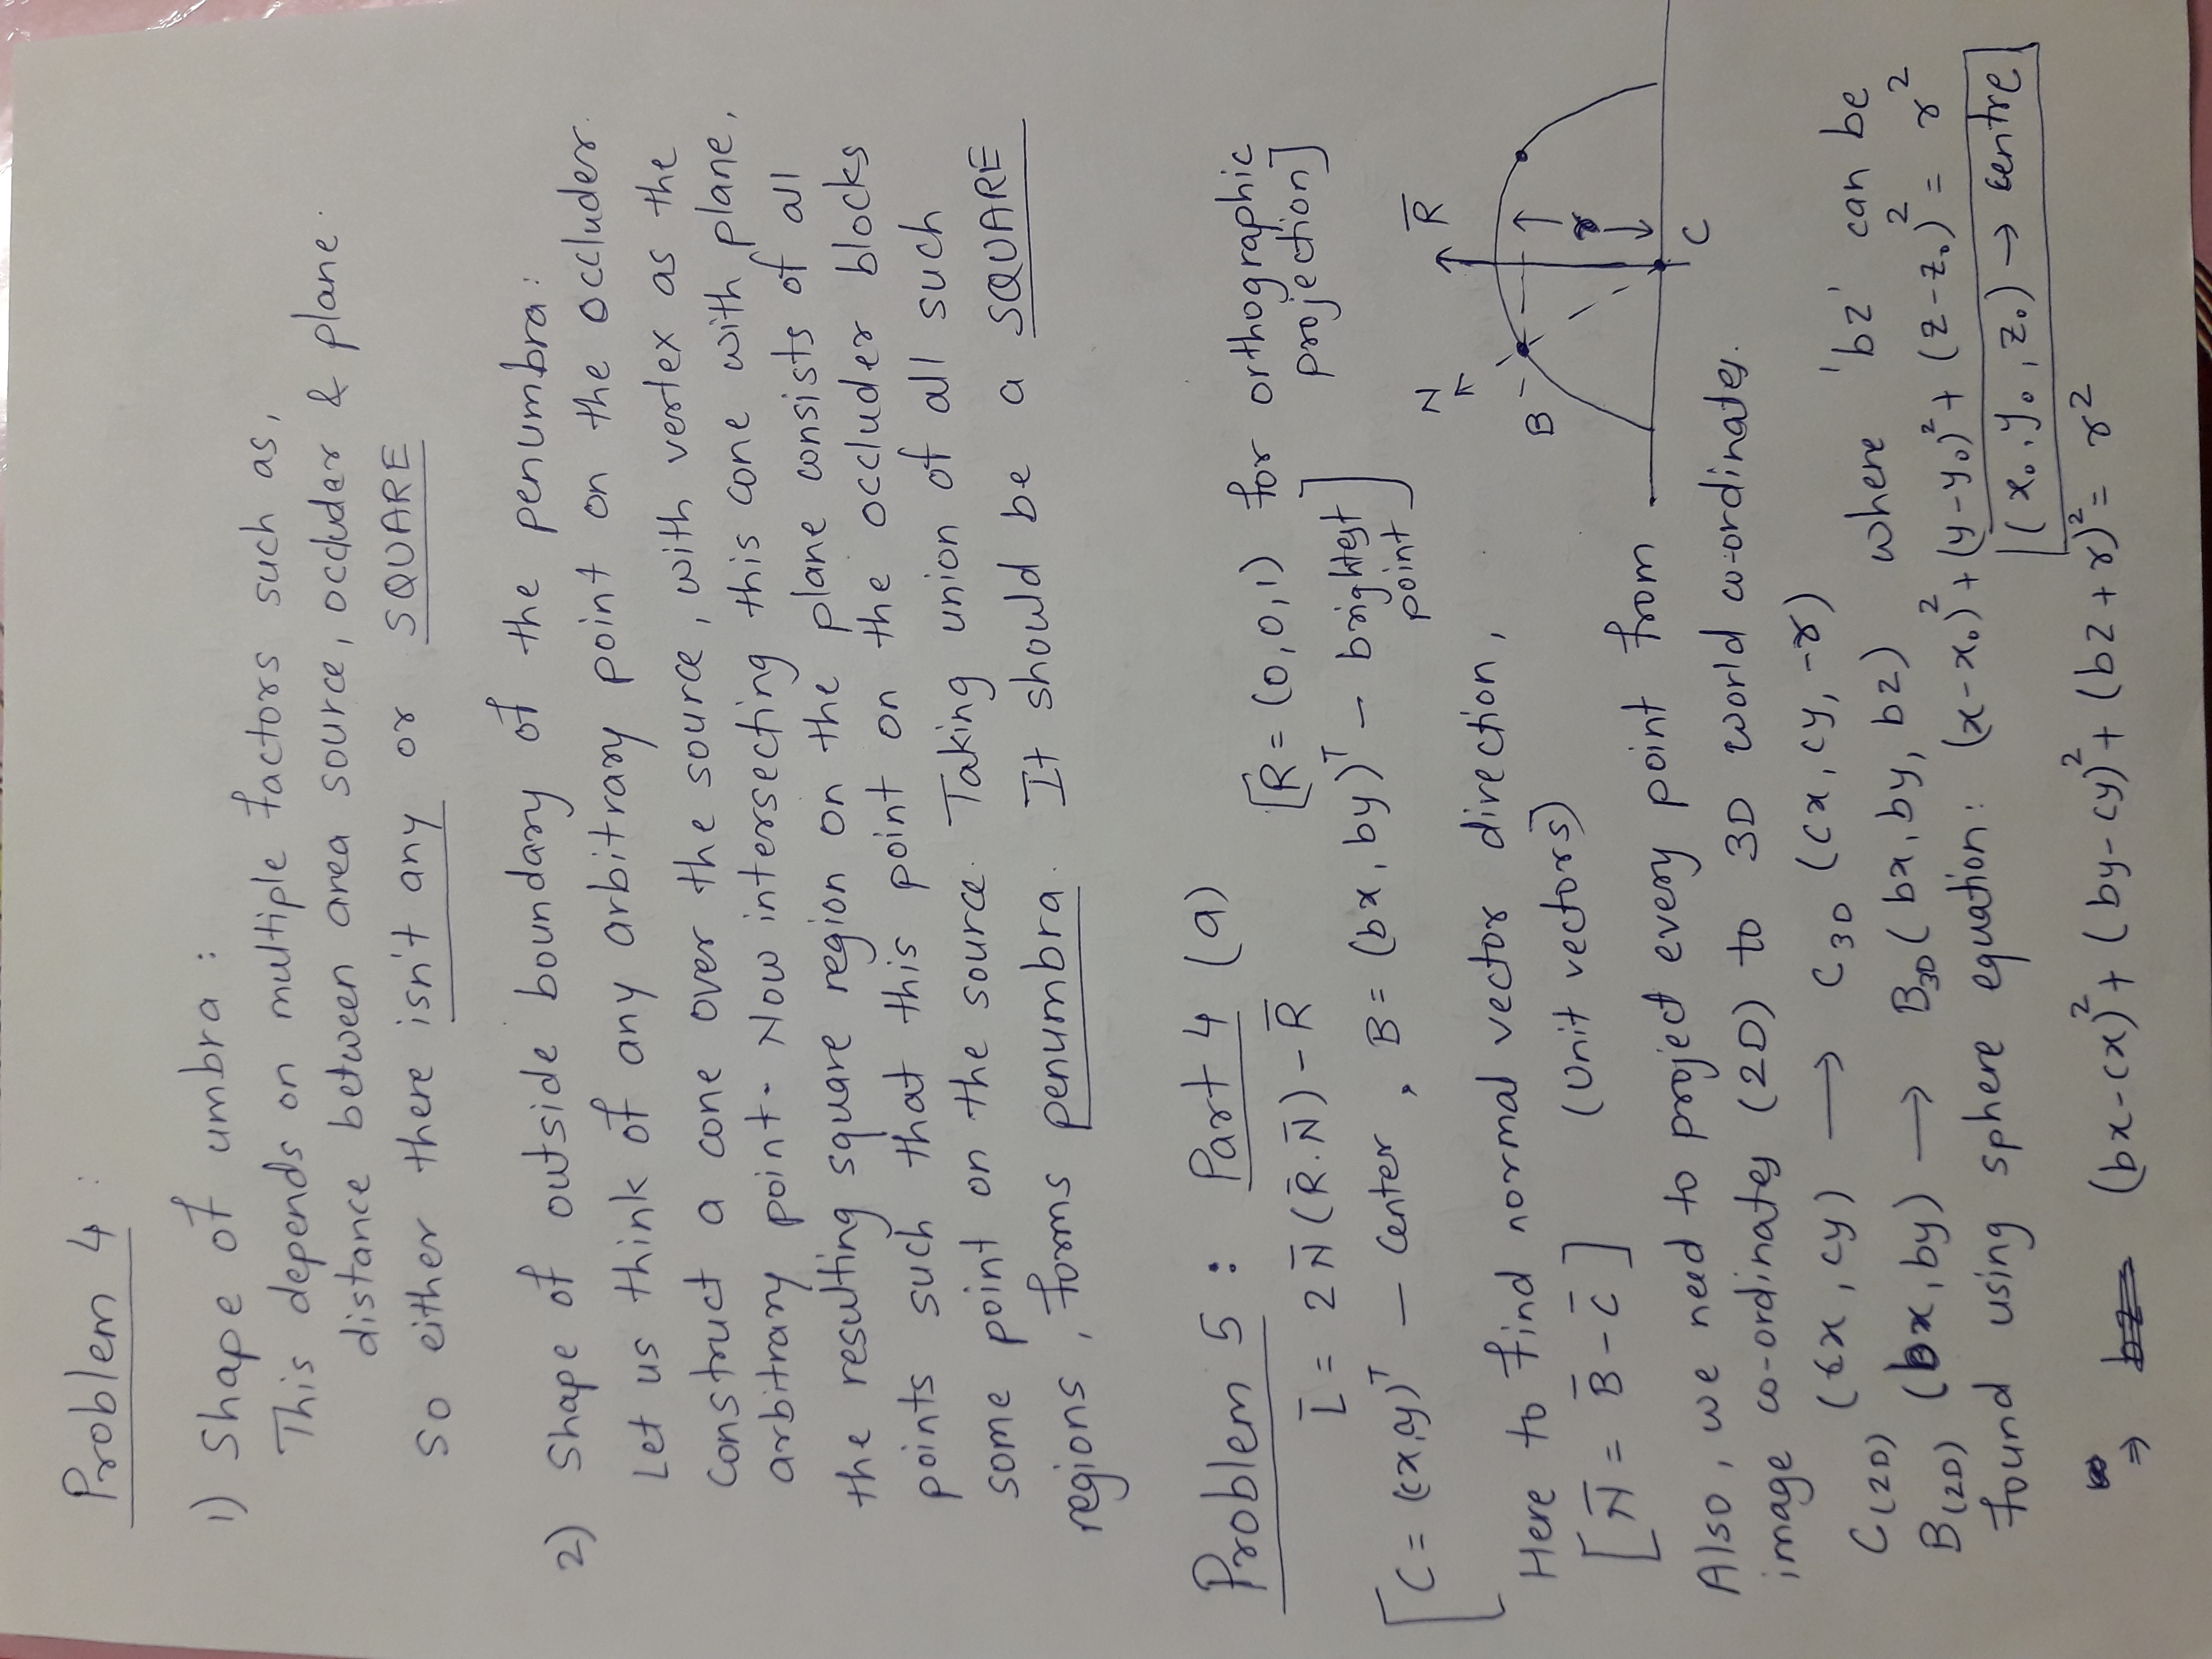 Problem 4 :
1) Shape of umbra :
This depends on multiple factors such as,
distance between area source, occluder & plane.
So either there isn't any or SQUARE
2) Shape of outside boundary of the penumbra:
Let us think of any arbitrary point on the occluder.
Construct a cone over the source, with vertex as the
arbitrary point. Now intersecting this cone with plane,
the resulting square region on the plane consists of all
points such that this point on the occluder blocks
some point on the source. Taking union of all such
regions, forms penumbra. It should be a SQUARE
Problem 5 : Part 4 (a)
L̄ = 2 N̄ (R̄.N̄) - R̄ [R̄ = (0,0,1) for orthographic
projection]
[C = (cx,cy)ᵀ — Center, B = (bx, by)ᵀ — brightest
point]
Here to find normal vector direction,
[N̄ = B̄ - C̄] (Unit vectors)
N
R̄
B
r
C
Also, we need to project every point from
image co-ordinates (2D) to 3D world co-ordinates.
C(2D) (cx, cy) → C3D (cx, cy, -r)
B(2D) (bx, by) → B3D (bx, by, bz) where 'bz' can be
found using sphere equation: (x-x₀)² + (y-y₀)² + (z-z₀)² = r²
(x₀, y₀, z₀) → centre
⇒ (bx-cx)² + (by-cy)² + (bz+r)² = r²